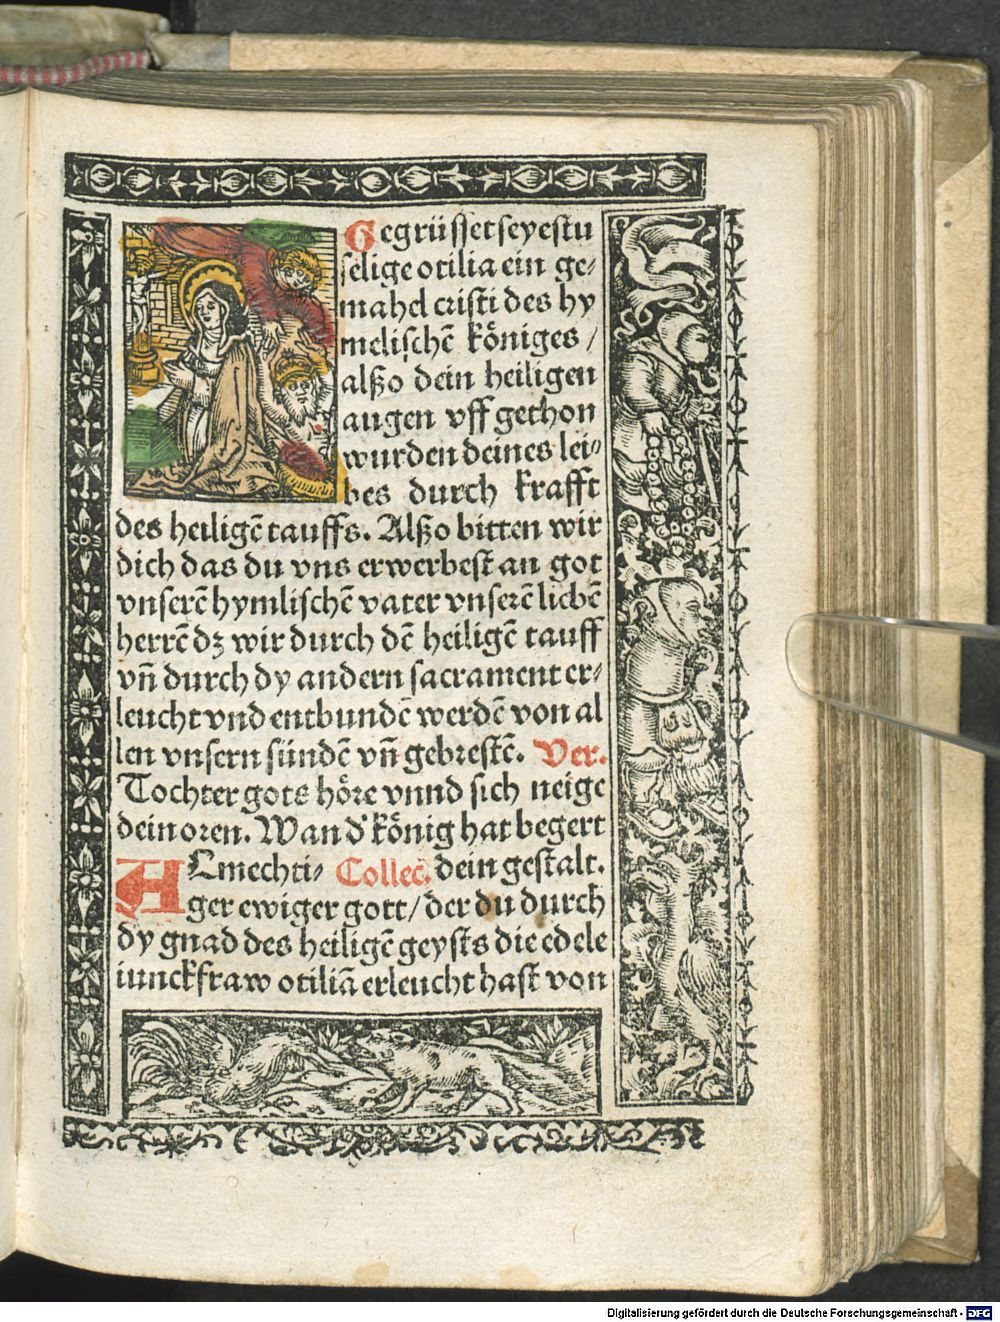 Gegrüsset seyestu
selige otilia ein ge⸗
mahel cristi des hy
melischē königes /
alßo dein heiligen
augen vff gethon
wurden deines lei⸗
bes durch krafft
des heiligē tauffs. Alßo bitten wir
dich das du vns erwerbest an got
vnserē hymlischē vater vnserē liebē
herrē dz wir durch dē heiligē tauff
vn̄ durch dy andern sacrament er⸗
leucht vnd entbundē werdē von al
len vnsern sündē vn̄ gebrestē. Ver.
Tochter gots höre vnnd sich neige
dein oren. Wan d' könig hat begert
ALmechti⸗ Collec̄. dein gestalt.
ger ewiger gott / der du durch
dy gnad des heiligē geysts die edele
iunckfraw otiliā erleucht hast von
Digitalisierung gefördert durch die Deutsche Forschungsgemeinschaft - DFG